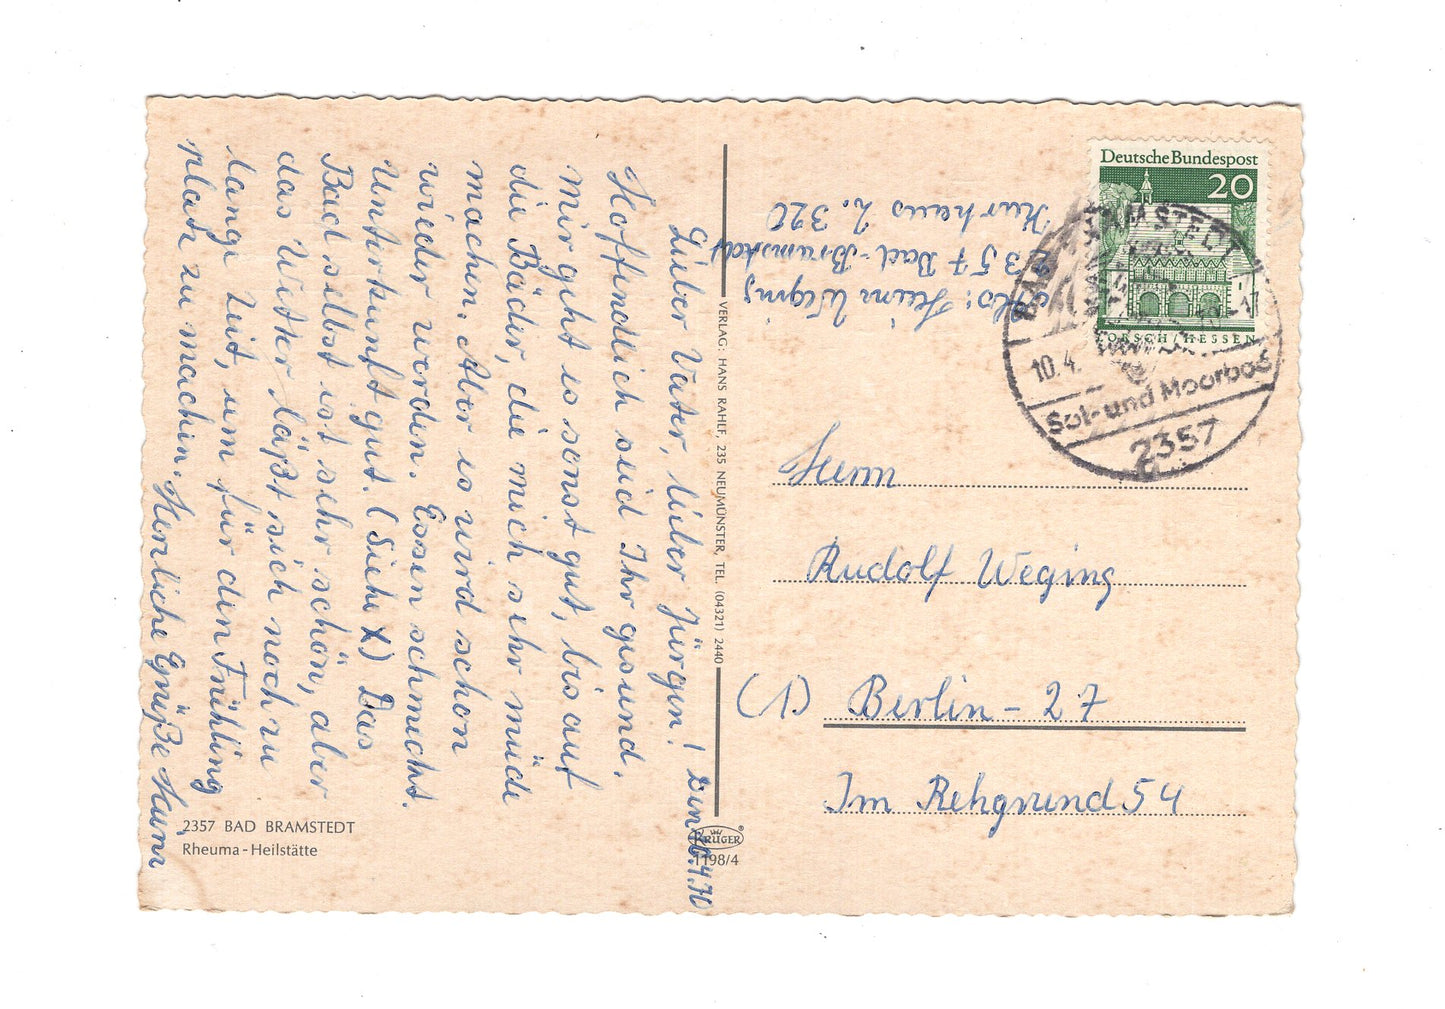 Den 10.4.70
Lieber Vater, lieber Jürgen!
Hoffendlich seid Ihr gesund,
mir geht es sonst gut, bis auf
die Bäder, die mich sehr müde
machen. Aber es wird schon
wieder werden. Essen schmeckt.
Unterkunft gut. (Siehe X) Das
Bad selbst ist sehr schön, aber
das Wetter läßt sich noch zu
lange Zeit, um für den Frühling
platz zu machen. Herzliche Grüße Heinz
2357 BAD BRAMSTEDT
Rheuma-Heilstätte
VERLAG: HANS RAHLF, 235 NEUMÜNSTER, TEL. (04321) 2440
KRÜGER®
1198/4
Abs: Heinz Weging
2357 Bad-Bramstedt
Kurhaus Z. 320
Deutsche Bundespost
20
LORSCH/HESSEN
BAD BRAMSTEDT
10.4.
Sol- und Moorbad
2357
Herrn
Rudolf Weging
(1) Berlin-27
Im Rehgrund 54